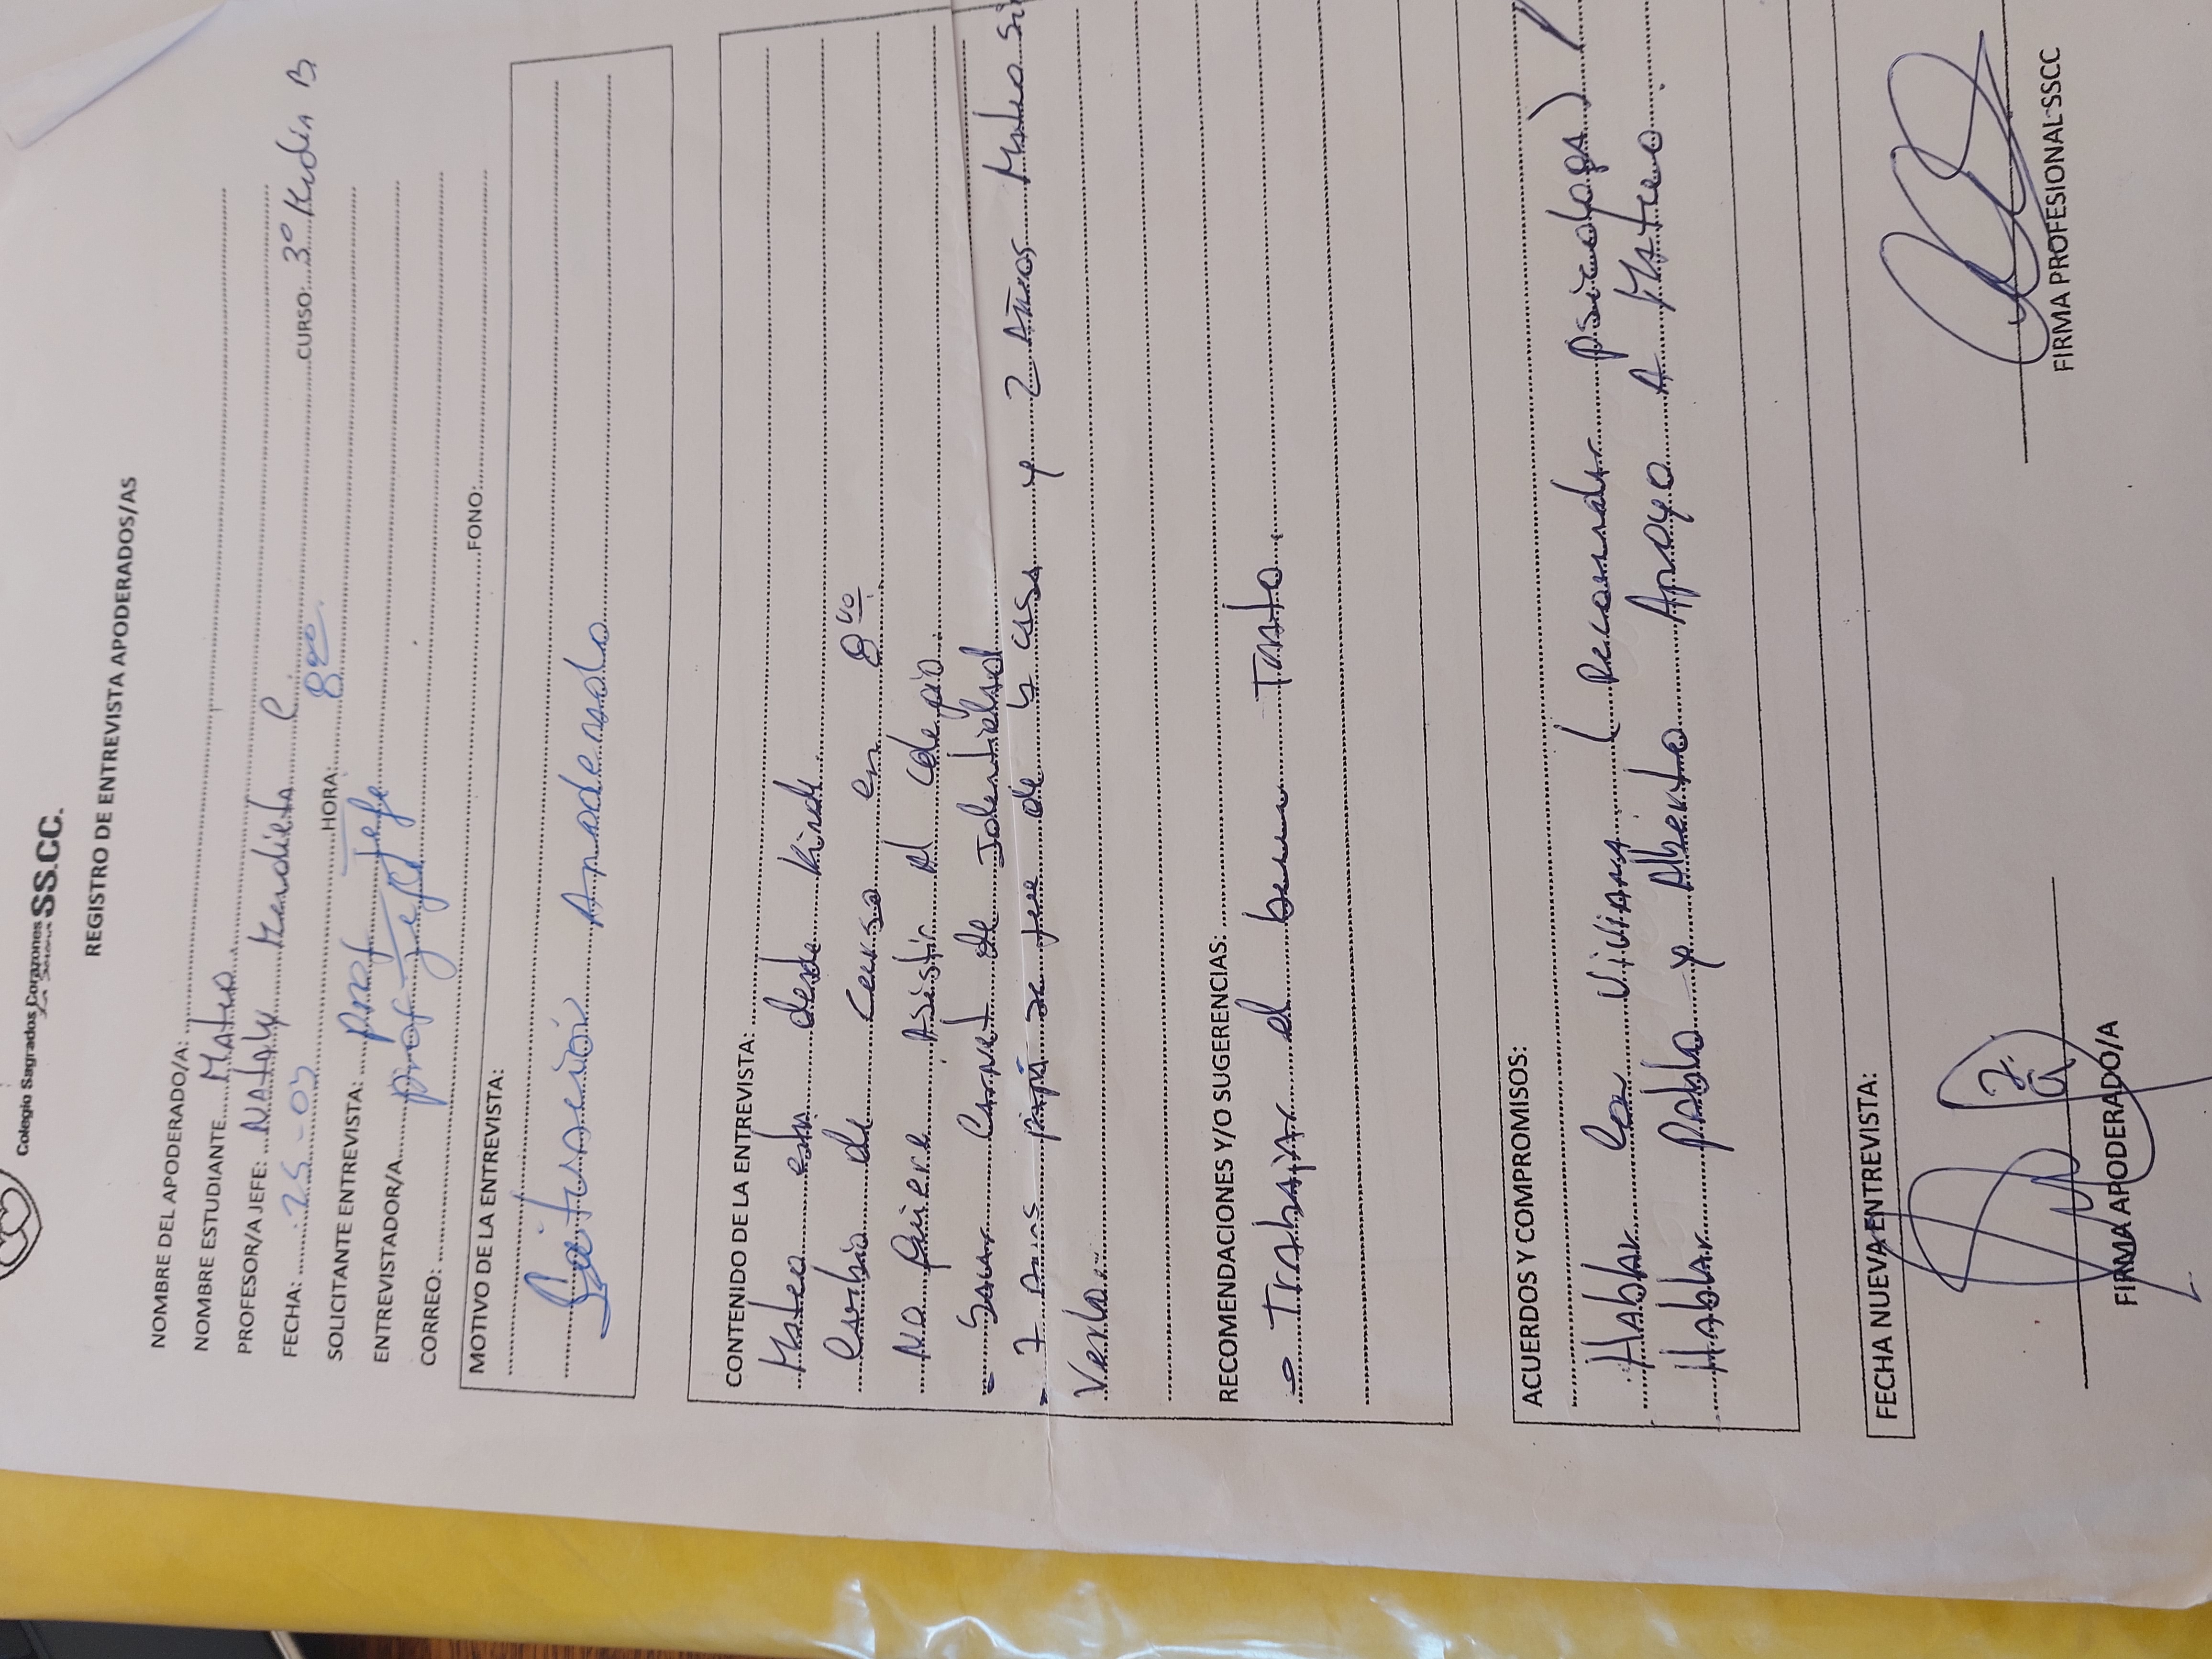 Colegio Sagrados Corazones SS.CC.
REGISTRO DE ENTREVISTA APODERADOS/AS
NOMBRE DEL APODERADO/A:
NOMBRE ESTUDIANTE Mateo
PROFESOR/A JEFE: Nataly Mendieta C. CURSO: 3° Media B
FECHA: 25-03 HORA: 8:00
SOLICITANTE ENTREVISTA: prof Jefe
ENTREVISTADOR/A prof Jefe
CORREO: FONO:
MOTIVO DE LA ENTREVISTA:
Situación Apoderado
CONTENIDO DE LA ENTREVISTA:
Mateo esta desde Kinde.
Cambio de Curso en 8vo.
No quiere Asistir al colegio.
- Sacar Carnet de Identidad
- 7 Años papá se fue de la casa y 2 Años Mateo sin
Verlo.
RECOMENDACIONES Y/O SUGERENCIAS:
- Trabajar el buen Trato.
ACUERDOS Y COMPROMISOS:
Hablar con Viviana (Recomendar psicologa)
Hablar Pablo y Alberto Apoyo A Mateo.
FECHA NUEVA ENTREVISTA:
FIRMA APODERADO/A
FIRMA PROFESIONAL SSCC